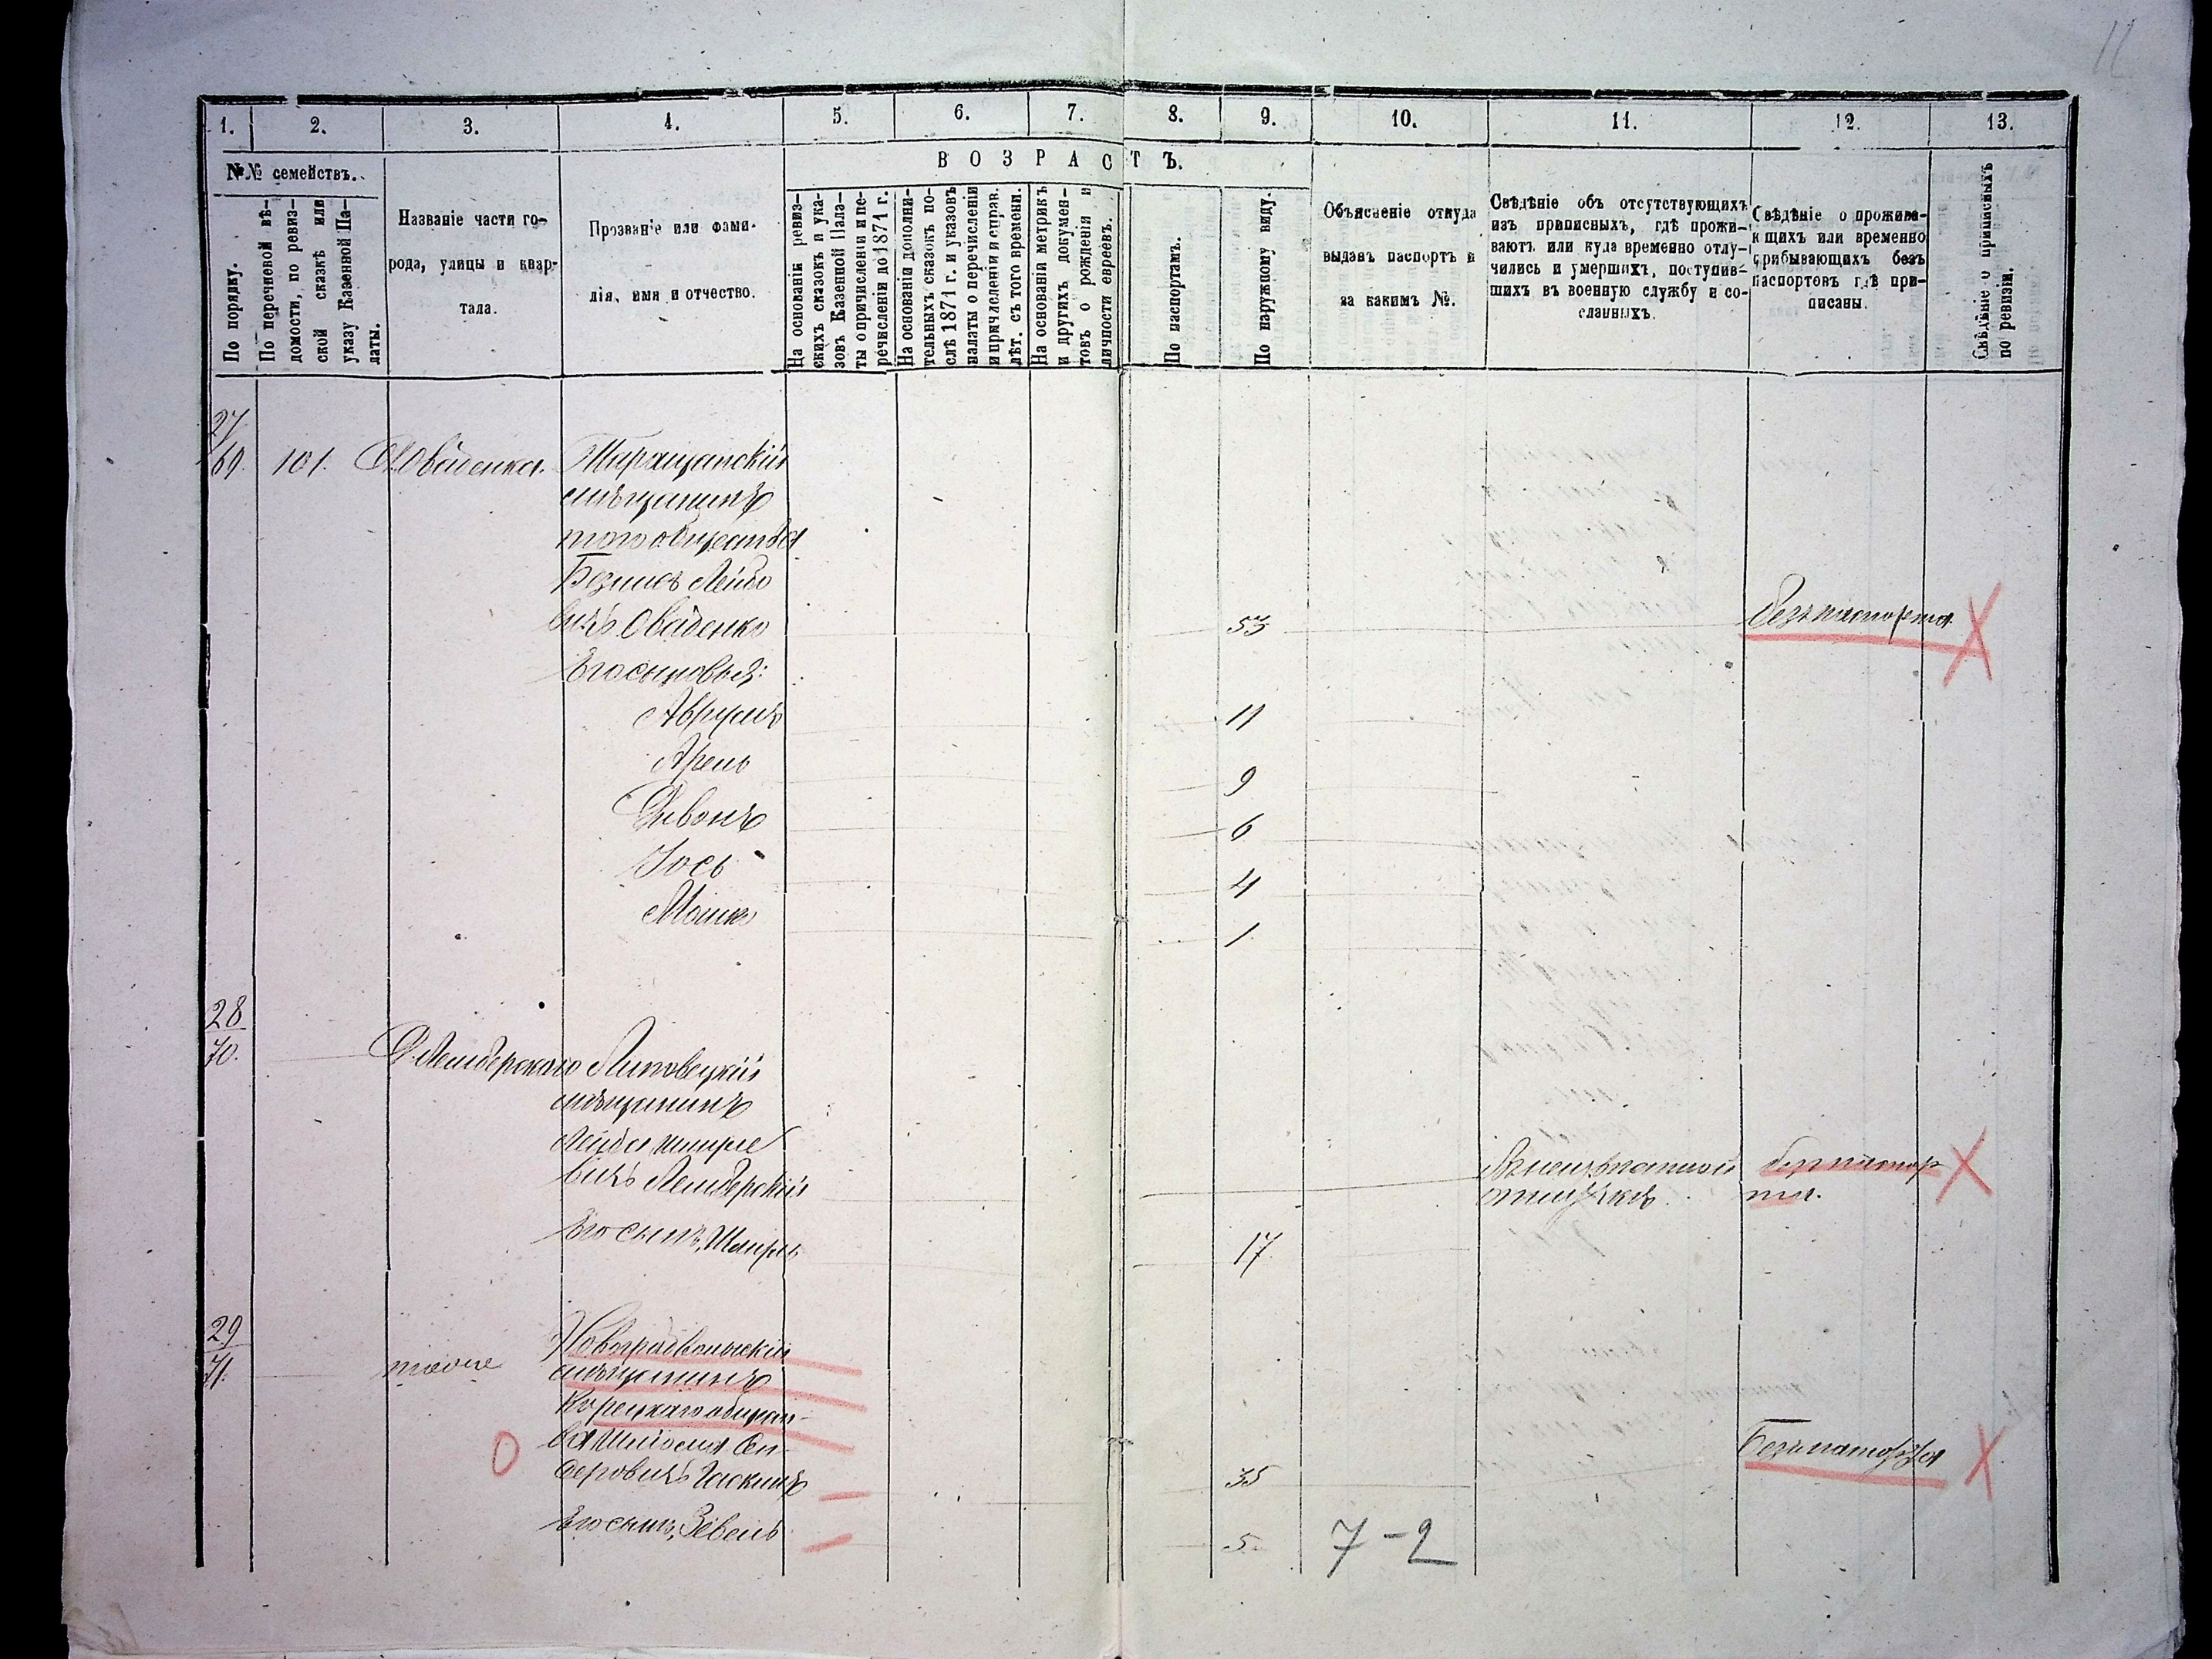 11
1. 2. 3. 4. 5. 6. 7. 8. 9. 10. 11. 12. 13.
№№ семействъ.
ВОЗРАСТЪ.
По порядку.
По перечневой вѣ-
домости, по ревиз-
ской сказкѣ или
указу Казенной Па-
латы.
Названіе части го-
рода, улицы и квар-
тала.
Прозваніе или фами-
лія, имя и отчество.
На основаніи ревиз-
скихъ сказокъ и ука-
зовъ Казенной Пала-
ты о причисленіи и пе-
речисленіи до 1871 г.
На основаніи дополни-
тельныхъ сказокъ по-
слѣ 1871 г. и указовъ
палаты о перечисленіи
и причисленіи и справ.
лѣт. съ того времени.
На основаніи метрикъ
и другихъ докумен-
товъ о рожденіи и
личности евреевъ.
По паспортамъ.
По наружному виду.
Объясненіе откуда
выданъ паспортъ и
за какимъ №.
Свѣдѣніе объ отсутствующихъ
изъ приписныхъ, гдѣ прожи-
ваютъ или куда временно отлу-
чились и умершихъ, поступив-
шихъ въ военную службу и со-
сланныхъ.
Свѣдѣніе о прожива-
ющихъ или временно
прибывающихъ безъ
паспортовъ гдѣ при-
писаны.
Свѣдѣніе о приписныхъ
по ревизіи.
27
69. 101. Д. Оваденка. Таращанскій
мѣщанинъ
того общества
Лейбо
вичъ Оваденко 53 безъ паспорта
Его сыновья:
Аврумъ 11
Арень 9
6
Іось 4
Мошко 1
28
70. Д. Лемберскаго Липовецкій
мѣщанинъ
Лейба Шмуле
вичъ Лемберскій безъ паспор
отлучкѣ. та.
Его сынъ, 17
29
71. тоже Новоградволынскій
мѣщанинъ
Корецкаго общест-
ва Сен-
деровичъ 35 Безъ паспорта
Его сынъ, 5
7-2